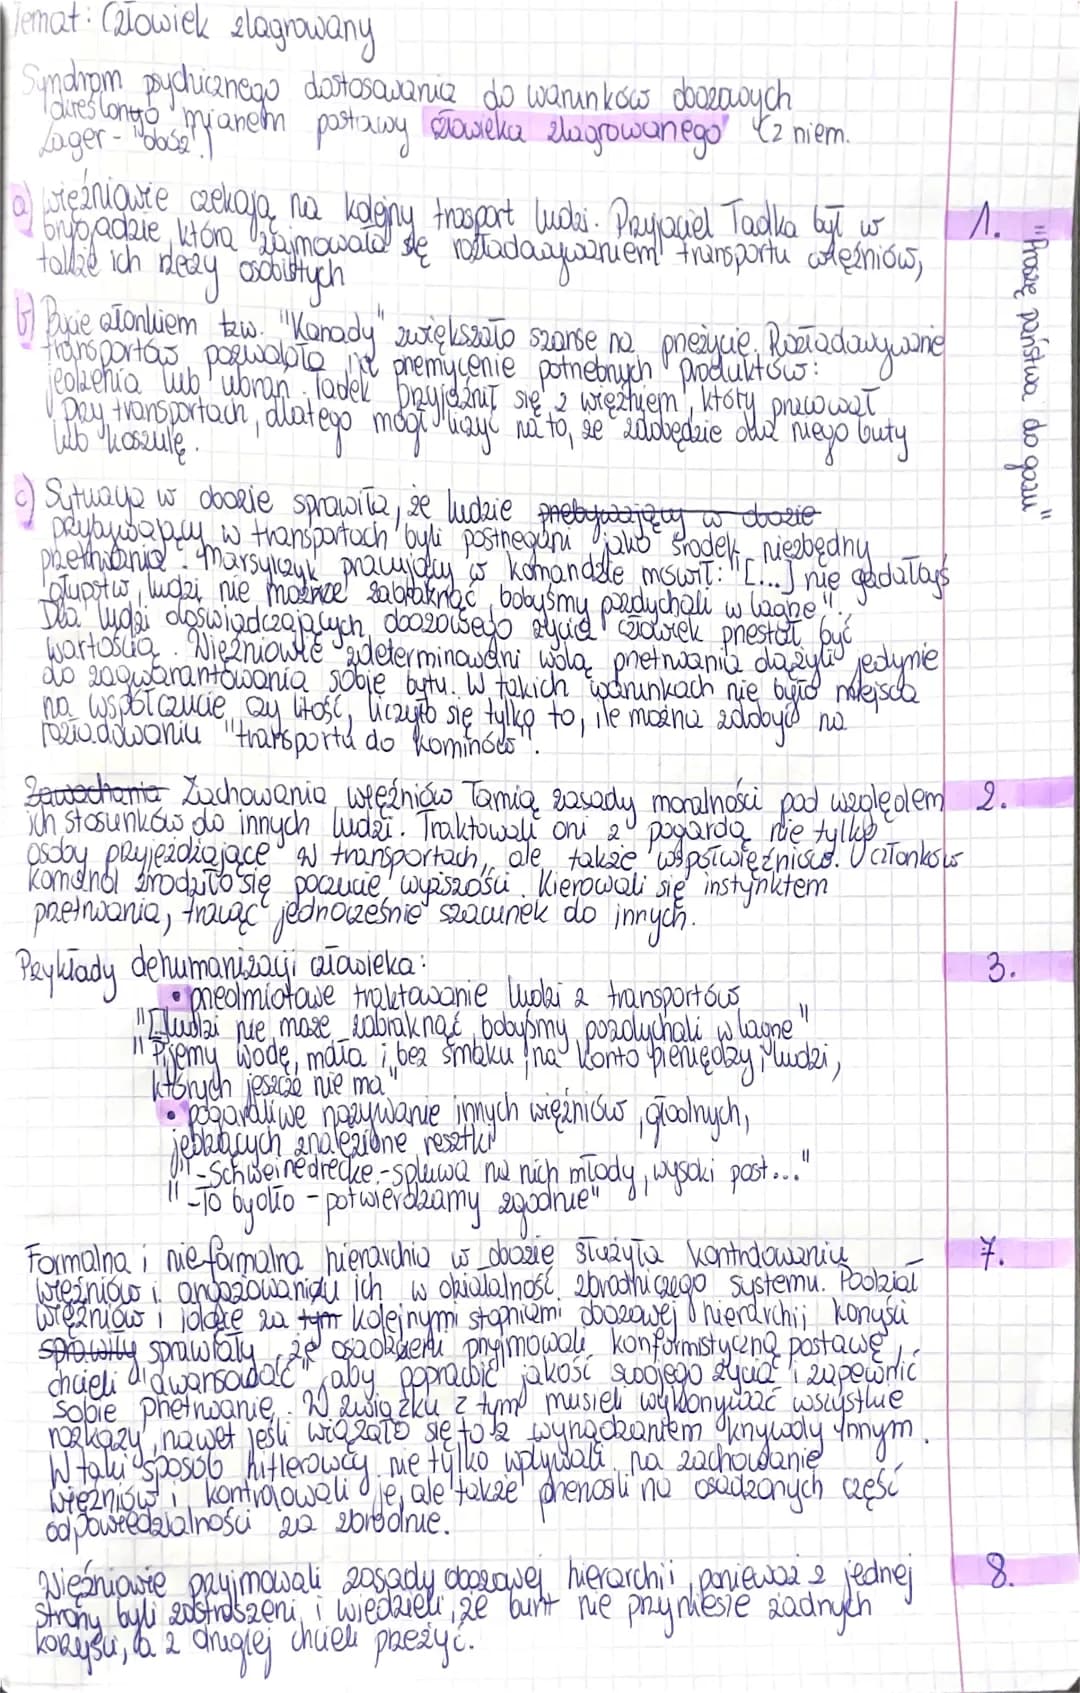 Temat: Człowiek zlagrowany
Syndrom psychicznego dostosowania do warunków obozowych
określongo mianem postawy człowieka zlagrowanego (z niem.
Lager - "obóz".)
1.
"Proszę państwa do gazu"
a) więźniowie czekają na kolejny trasport ludzi. Przyjaciel Tadka był w
brygadzie, która zajmowała się rozładowywaniem transportu więźniów,
także ich rzeczy osobistych
b) Bycie członkiem tzw. "Kanady" zwiększało szanse na przeżycie. Rozładowywanie
transportów pozwalało na przemycenie potrzebnych produktów:
jedzenia lub ubran. Tadek przyjaźnił się z więźniem, który pracował
przy transportach, dlatego mógł liczyć na to, że zdobędzie dla niego buty
lub koszulę.
c) Sytuacja w obozie sprawiła, że ludzie przebywający w obozie
przybywający w transportach byli postrzegani jako środek niezbędny
przetrwania. Marsylczyk pracujący w komandzie mówił: "[...] nie gadałbyś
głupstw, ludzi nie może zabraknąć, bobyśmy pozdychali w lagrze".
Dla ludzi doświadczających obozowego życia człowiek przestał być
wartością. Więźniowie zdeterminowani wolą przetrwania dążyli jedynie
do zagwarantowania sobie bytu. W takich warunkach nie było miejsca
na współczucie czy litość, liczyło się tylko to, ile można zdobyć na
rozładowaniu "transportu do kominów".
2.
Zawachania Zachowania więźniów łamią zasady moralności pod względem
ich stosunków do innych ludzi. Traktowali oni z pogardą nie tylko
osoby przyjeżdżające w transportach, ale także współwięźniów. U członków
komand zrodziło się poczucie wyższości. Kierowali się instynktem
przetrwania, tracąc jednocześnie szacunek do innych.
3.
Przykłady dehumanizacji człowieka:
• przedmiotowe traktowanie ludzi z transportów
"[ludzi nie może zabraknąć, bobyśmy pozdychali w lagrze"
"Pijemy wodę, mdłą i bez smaku, na konto pieniędzy i ludzi,
których jeszcze nie ma"
• pogardliwe nazywanie innych więźniów, głodnych,
jedzących znalezione resztki
"-Schweinedrecke.-spluwa na nich młody, wysoki post..."
"-To bydło - potwierdzamy zgodnie"
7.
Formalna i nieformalna hierarchia w obozie służyła kontrolowaniu
więźniów i angażowaniu ich w działalność zbrodniczego systemu. Podział
więźniów i idące za tym kolejnymi stopniami obozowej hierarchii korzyści
sprawiły sprawiały, że osadzeni przyjmowali konformistyczną postawę,
chcieli "awansować", aby poprawić jakość swojego życia i zapewnić
sobie przetrwanie. W związku z tym musieli wykonywać wszystkie
rozkazy, nawet jeśli wiązało się to z wyrządzaniem krzywdy innym.
W taki sposób hitlerowcy nie tylko wpływali na zachowanie
więźniów i kontrolowali je, ale także przenosili na osadzonych część
odpowiedzialności za zbrodnie.
8.
Więźniowie przyjmowali zasady obozowej hierarchii, ponieważ z jednej
strony byli zastraszeni i wiedzieli, że bunt nie przyniesie żadnych
korzyści, a z drugiej chcieli przeżyć.